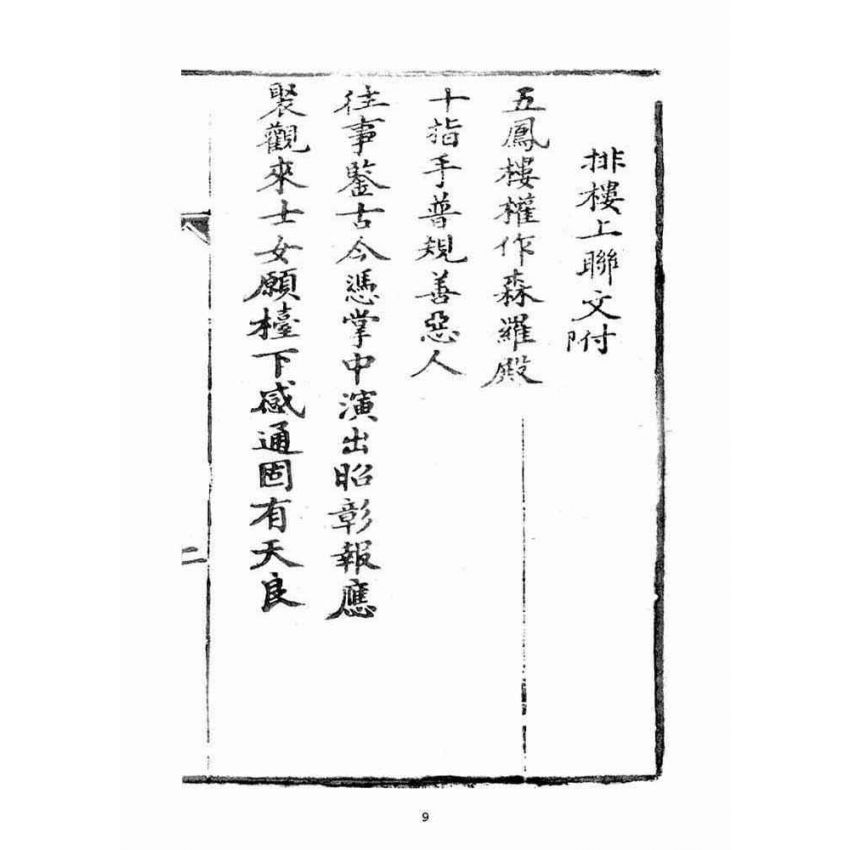 排樓上聯文附
五鳳樓權作森羅殿
十指手普規善惡人
往事鑒古今憑掌中演出昭彰報應
聚觀來士女願檯下感通固有天良
二
9